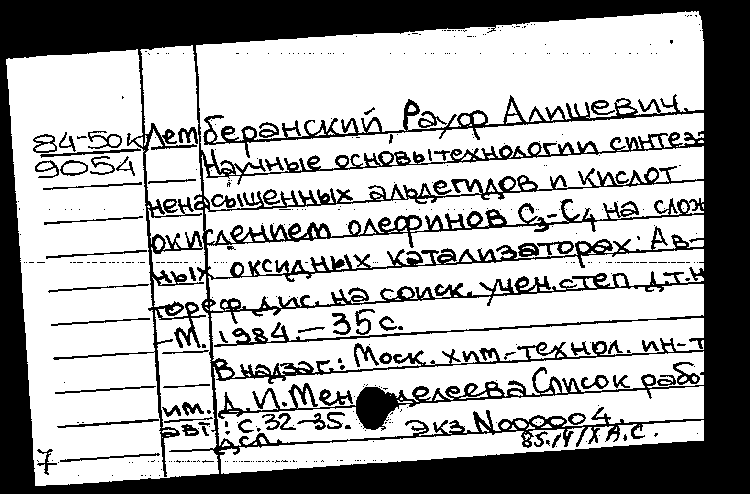 84-50к Летберанский, Рауф Алишевич.
9054 Научные основы технологии синтеза
ненасыщенных альдегидов и кислот
окислением олефинов С3-С4 на слож
ных оксидных катализаторах: Ав-
тореф. дис. на соиск. учен. степ. д.т.н
-М. 1984.-35с.
В надзаг.: Моск. хим.-технол. ин-т
им. Д. И. Менделеева Список работ
авт.: с. 32-35. экз. N000004.
ДСП. 85.IY/X А.С.
7